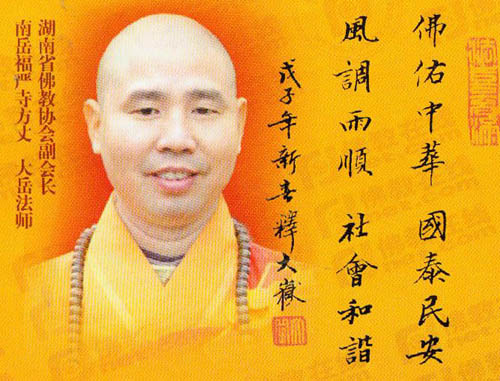 佛佑中華 國泰民安
風調雨順 社會和諧
戊子年新春釋大嶽
湖南省佛教协会副会长
南岳福严寺方丈 大岳法师